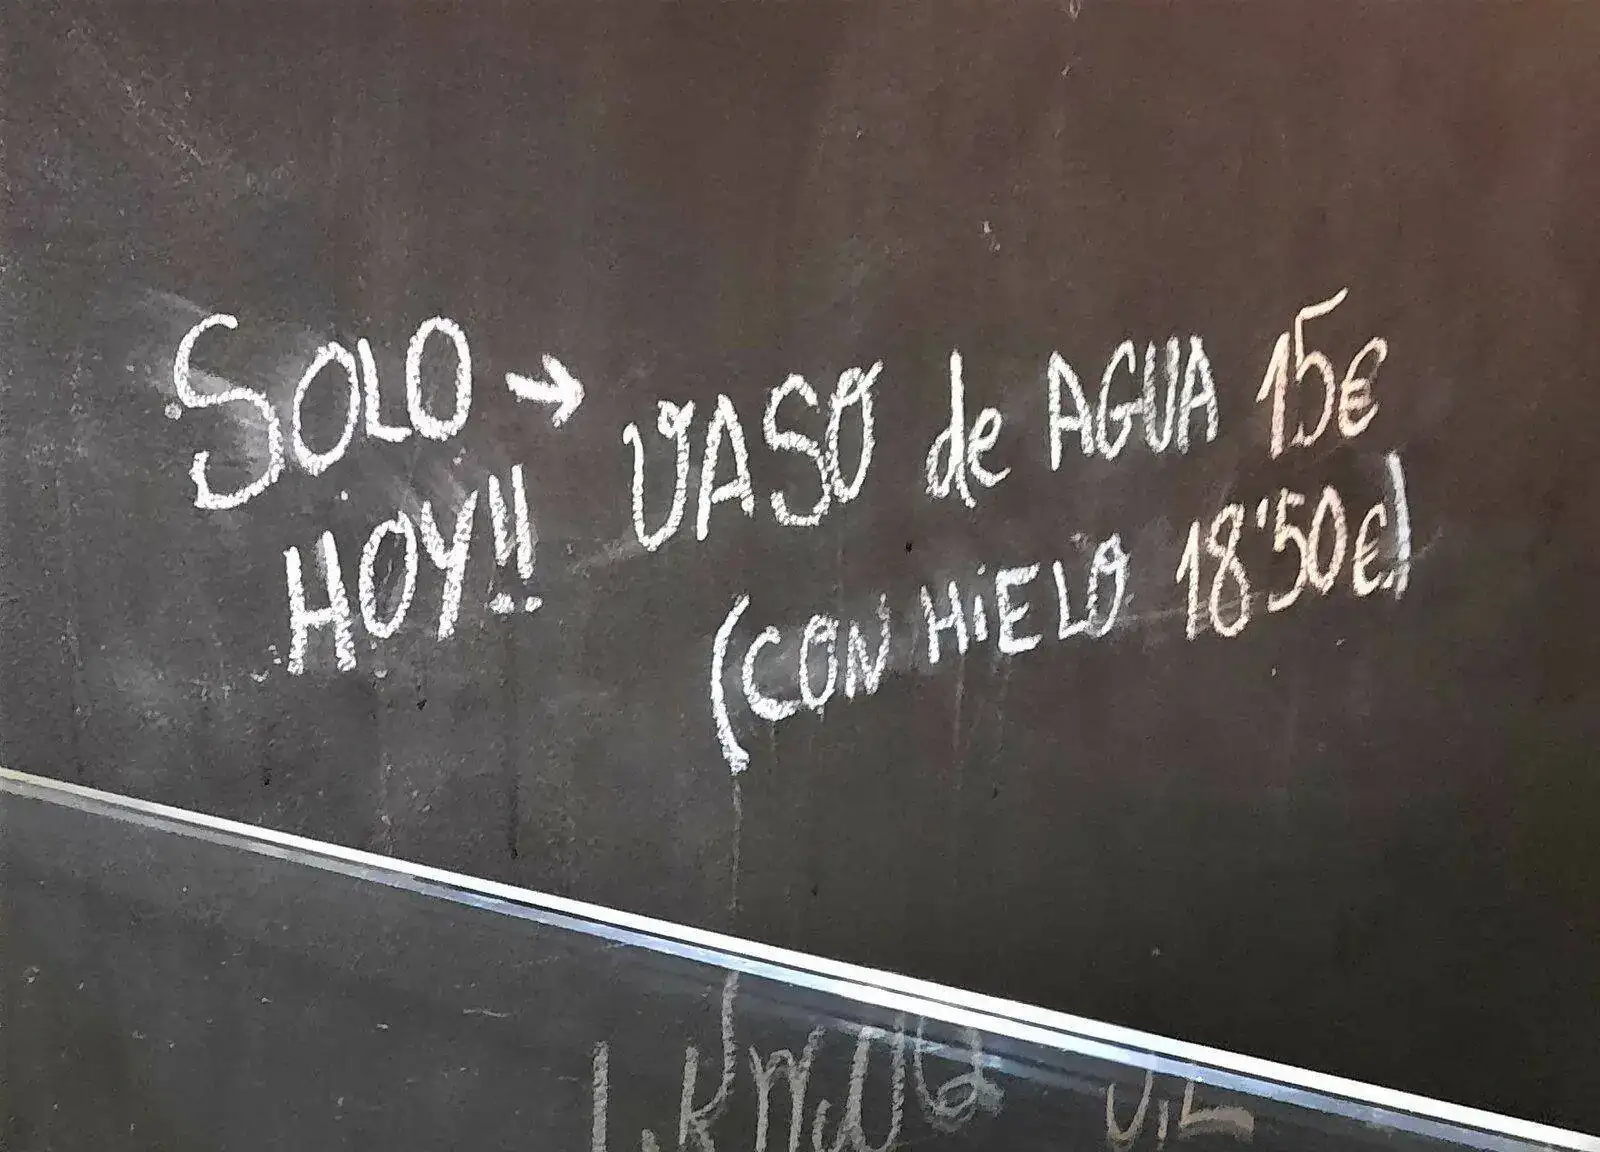 SOLO → VASO de AGUA 15€
HOY!! (CON HIELO 18'50€)